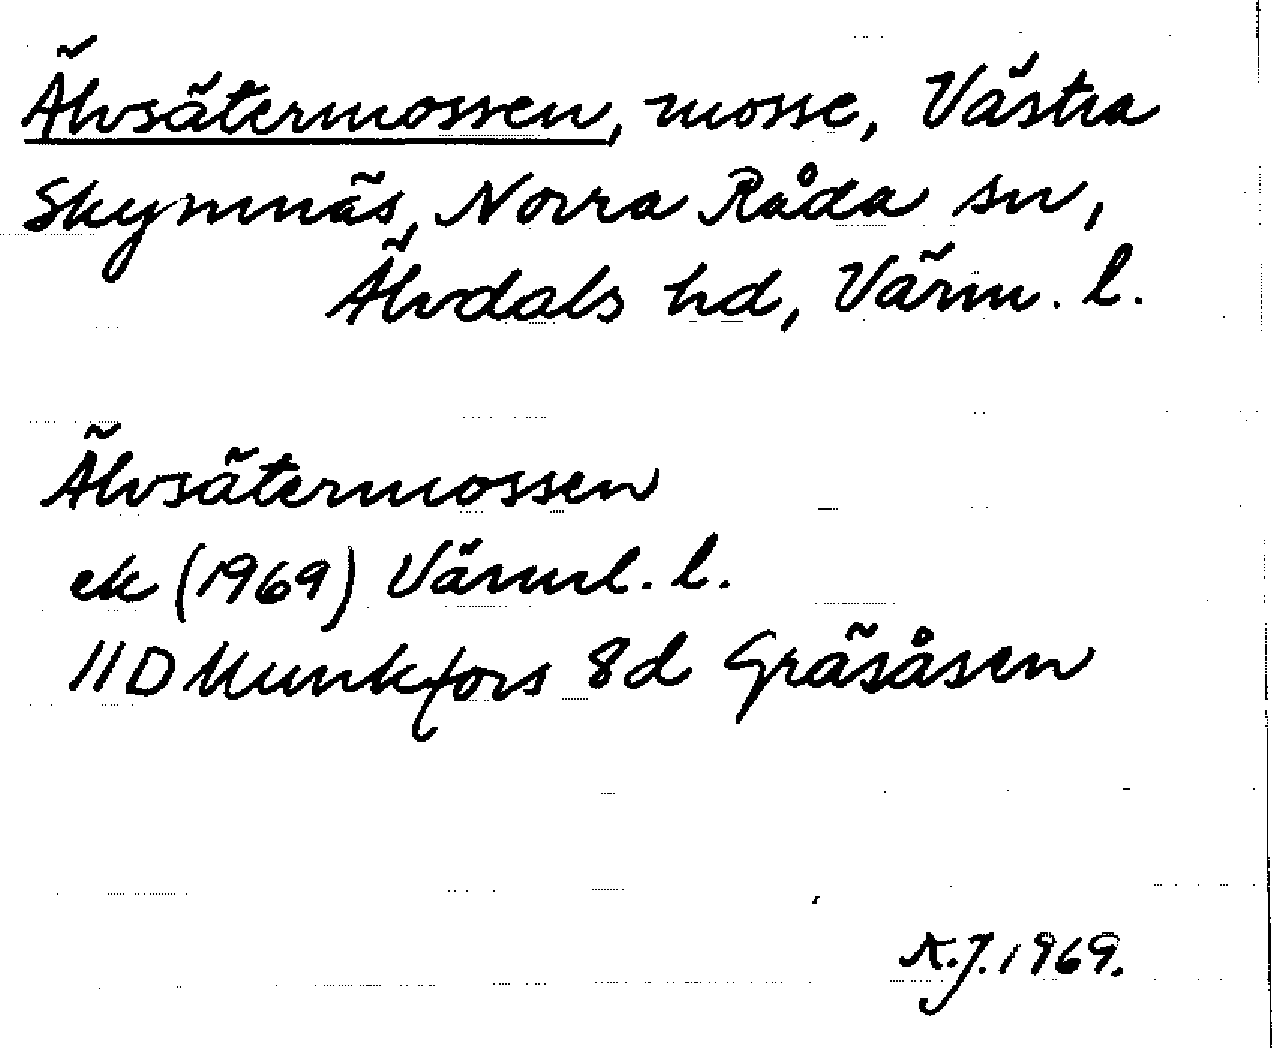 Älvsätermossen, mosse, Västra
Skymnäs, Norra Råda sn,
Älvdals hd, Värm. l.
Älvsätermossen
ek (1969) Värml. l.
11D Munkfors 8d Gräsåsen
A.J. 1969.